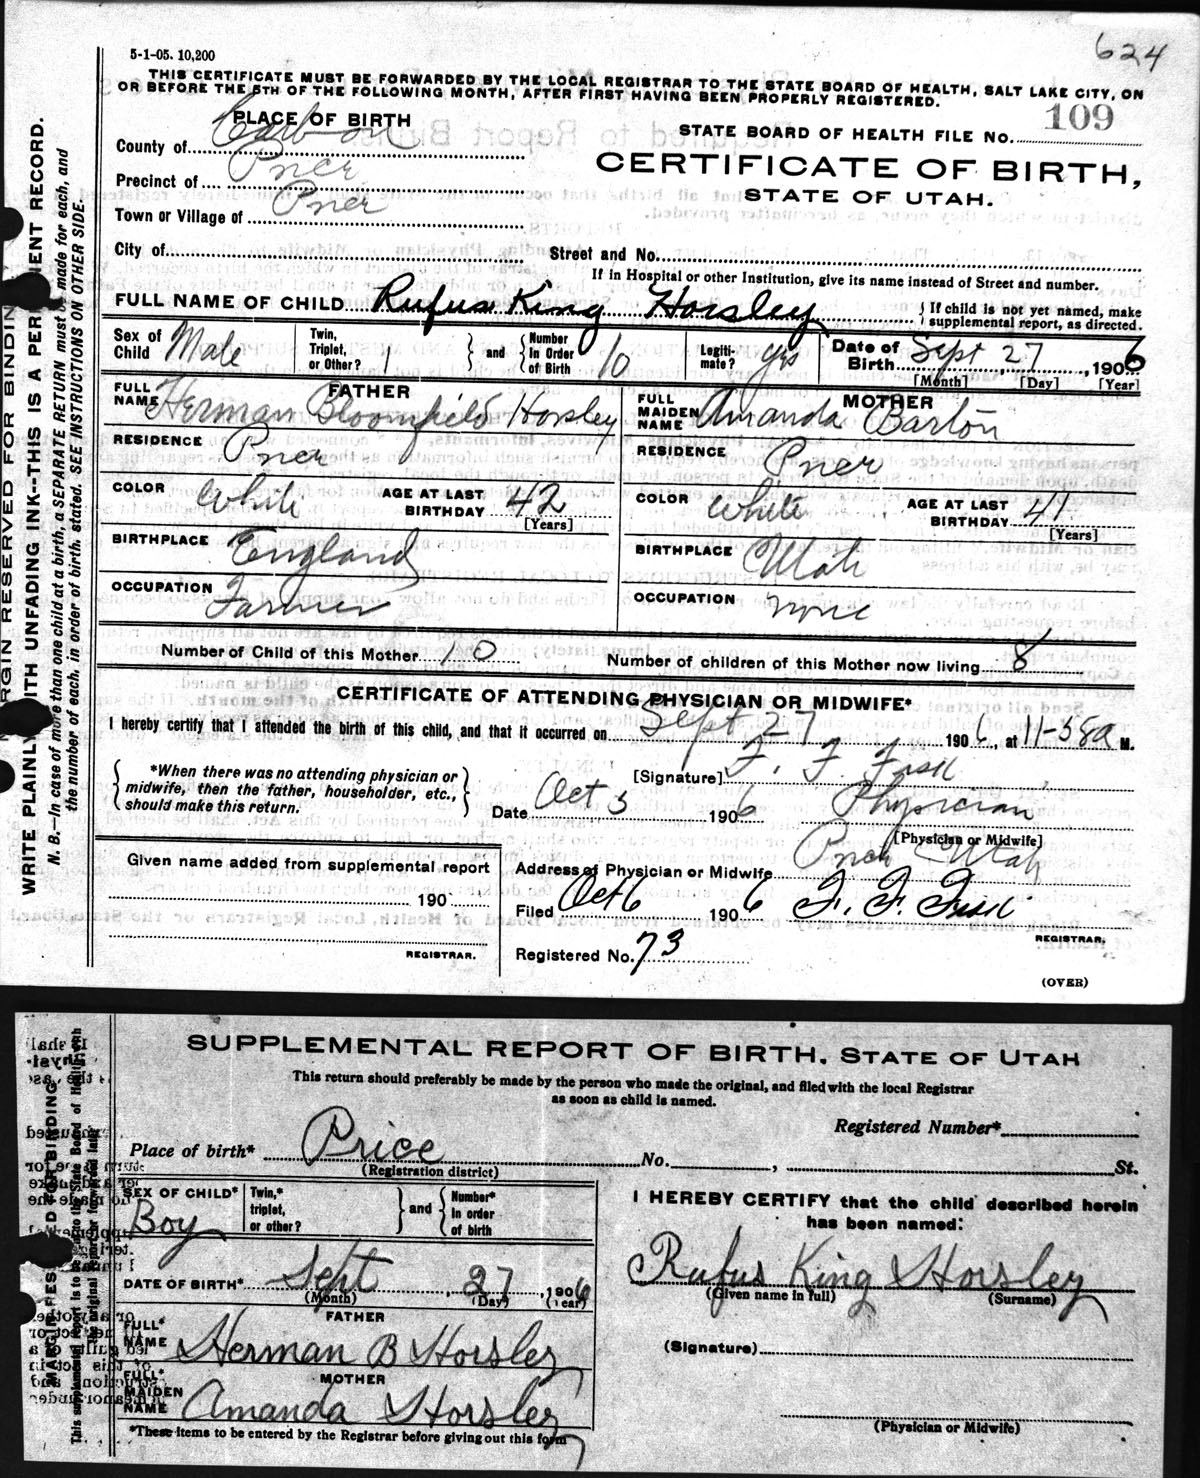 624
5-1-05. 10,200
THIS CERTIFICATE MUST BE FORWARDED BY THE LOCAL REGISTRAR TO THE STATE BOARD OF HEALTH, SALT LAKE CITY, ON
OR BEFORE THE 5TH OF THE FOLLOWING MONTH, AFTER FIRST HAVING BEEN PROPERLY REGISTERED.
PLACE OF BIRTH
County of Carbon
Precinct of Price
Town or Village of Price
City of
STATE BOARD OF HEALTH FILE No. 109
CERTIFICATE OF BIRTH,
STATE OF UTAH.
Street and No.
If in Hospital or other Institution, give its name instead of Street and number.
FULL NAME OF CHILD Rufus King Horsley { If child is not yet named, make
supplemental report, as directed.
Sex of Child Male
Twin, Triplet, or Other? 1 } and { Number in Order of Birth 10
Legiti-mate? yes
Date of Birth Sept 27, 1906
[Month] [Day] [Year]
FATHER
FULL NAME Herman Bloomfield Horsley
RESIDENCE Price
COLOR White AGE AT LAST BIRTHDAY 42
[Years]
BIRTHPLACE England
OCCUPATION Farmer
MOTHER
FULL MAIDEN NAME Amanda Barton
RESIDENCE Price
COLOR White AGE AT LAST BIRTHDAY 41
[Years]
BIRTHPLACE Utah
OCCUPATION None
Number of Child of this Mother 10 Number of children of this Mother now living 8
CERTIFICATE OF ATTENDING PHYSICIAN OR MIDWIFE*
I hereby certify that I attended the birth of this child, and that it occurred on Sept 27 1906, at 11-58a M.
{ *When there was no attending physician or
midwife, then the father, householder, etc.,
should make this return. }
[Signature] F. F. Fisk
Date Oct 3 1906 Physician
[Physician or Midwife]
Address of Physician or Midwife Price Utah
Filed Oct 6 1906 F. F. Fisk
REGISTRAR.
Registered No. 73
Given name added from supplemental report
190
REGISTRAR.
(OVER)
MARGIN RESERVED FOR BINDING
WRITE PLAINLY WITH UNFADING INK--THIS IS A PERMANENT RECORD.
N. B.—In case of more than one child at a birth, a SEPARATE RETURN must be made for each, and
the number of each, in order of birth, stated. SEE INSTRUCTIONS ON OTHER SIDE.
SUPPLEMENTAL REPORT OF BIRTH, STATE OF UTAH
This return should preferably be made by the person who made the original, and filed with the local Registrar
as soon as child is named.
Registered Number*
Place of birth* Price No. , St.
(Registration district)
SEX OF CHILD* Boy
Twin,* triplet, or other? } and { Number* in order of birth
DATE OF BIRTH* Sept, 27, 1906
(Month) (Day) (Year)
FATHER
FULL* NAME Herman B Horsley
MOTHER
FULL* MAIDEN NAME Amanda Horsley
*These items to be entered by the Registrar before giving out this form
I HEREBY CERTIFY that the child described herein
has been named:
Rufus King Horsley
(Given name in full) (Surname)
(Signature)
(Physician or Midwife)
MARGIN RESERVED FOR BINDING